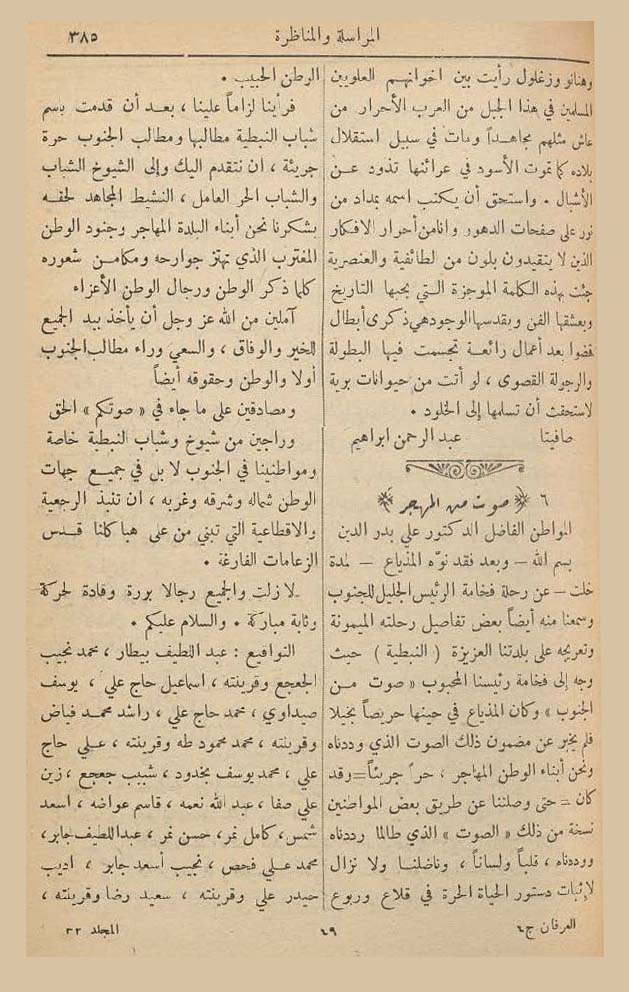 المراسلة والمناظرة
٣٨٥
وهنانو وزغلول رأيت بين اخوانهم العلويين
المسلمين في هذا الجبل من العرب الأحرار من
عاش مثلهم مجاهداً ومات في سبيل استقلال
بلاده كما تموت الأسود في عرائنها تذود عن
الأشبال . واستحق أن يكتب اسمه بمداد من
نور على صفحات الدهور وانا من أحرار الافكار
الذين لا يتقيدون بلون من الطائفية والعنصرية
جئت بهذه الكلمة الموجزة التي يحبها التاريخ
ويعشقها الفن ويقدسها الوجود هي ذكرى أبطال
قضوا بعد أعمال رائعة تجسمت فيها البطولة
والرجولة القصوى ، لو أتت من حيوانات برية
لاستحقت أن تسلمها إلى الخلود .
صافيتا عبد الرحمن ابراهيم
٦ صوت من المهجر
المواطن الفاضل الدكتور علي بدر الدين
بسم الله – وبعد فقد نوّه المذياع – لمدة
خلت – عن رحلة فخامة الرئيس الجليل للجنوب
وسمعنا منه أيضاً بعض تفاصيل رحلته الميمونة
وتعريجه على بلدتنا العزيزة ( النبطية ) حيث
وجه إلى فخامة رئيسنا المحبوب « صوت من
الجنوب » وكان المذياع في حينها حريصاً بخيلا
فلم يخبر عن مضمون ذلك الصوت الذي وددناه
ونحن أبناء الوطن المهاجر ، حراً جريئاً = وقد
كان = حتى وصلتنا عن طريق بعض المواطنين
نسخة من ذلك « الصوت » الذي طالما رددناه
ووددناه ، قلباً ولساناً ، وناضلنا ولا نزال
لإثبات دستور الحياة الحرة في قلاع وربوع
الوطن الحبيب .
فرأينا لزاماً علينا ، بعد أن قدمت باسم
شباب النبطية مطالبها ومطالب الجنوب حرة
جريئة ، ان نتقدم اليك وإلى الشيوخ الشباب
والشباب الحر العامل ، النشيط المجاهد لحقه
بشكرنا نحن أبناء البلدة المهاجر وجنود الوطن
المغترب الذي تهتز جوارحه ومكامن شعوره
كلما ذكر الوطن ورجال الوطن الأعزاء
آملين من الله عز وجل أن يأخذ بيد الجميع
للخير والوفاق ، والسعي وراء مطالب الجنوب
أولا والوطن وحقوقه أيضاً
ومصادقين على ما جاء في « صوتكم » الحق
وراجين من شيوخ وشباب النبطية خاصة
ومواطنينا في الجنوب لا بل في جميع جهات
الوطن شماله وشرقه وغربه ، ان تنبذ الرجعية
والاقطاعية التي تبني من على هياكلنا قدس
الزعامات الفارغة .
لا زلت والجميع رجالا بررة وقادة لحركة
وثابة مباركة . والسلام عليكم .
التواقيع : عبد اللطيف بيطار ، محمد نجيب
الجعجع وقرينته ، اسماعيل حاج علي ، يوسف
صيداوي ، محمد حاج علي ، راشد محمد فياض
وقرينته ، محمد محمود طه وقرينته ، علي حاج
علي ، محمد يوسف بخدود ، شبيب جعجع ، زين
علي صفا ، عبد الله نعمه ، قاسم عواضه ، اسعد
شمس ، كامل نمر ، حسن نمر ، عبد اللطيف جابر ،
محمد علي فحص ، نجيب أسعد جابر ، اديب
حيدر علي وقرينته ، سعيد رضا وقرينته ،
العرفان ج٤
٤٩
المجلد ٣٢